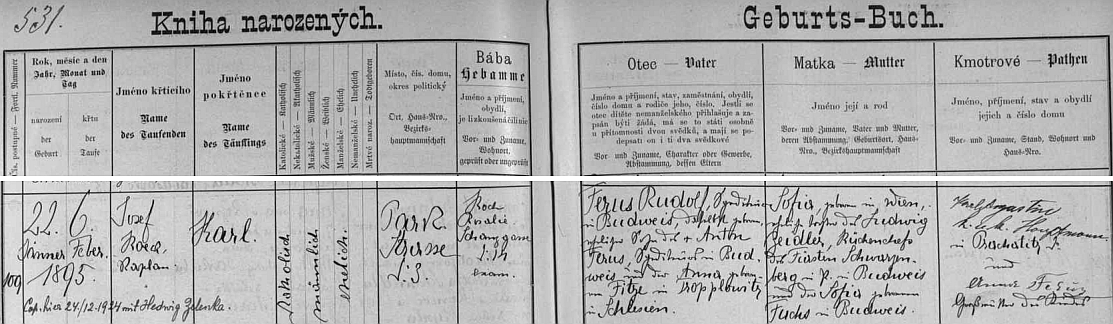 531.
Kniha narozených.
Geburts-Buch.
Čís. postupné — Fortl. Nummer
Rok, měsíc a den
Jahr, Monat und
Tag
narození
der
Geburt
křtu
der
Taufe
Jméno křtícího
Name
des Taufenden
Jméno
pokřtěnce
Name
des Täuflings
Katolické — Katholisch
Nekatolické — Akatholisch
Mužské — Männlich
Ženské — Weiblich
Manželské — Ehelich
Nemanželské — Unehelich
Mrtvě naroz. — Todtgeboren
Místo, čís. domu,
okres politický
Ort, Haus-Nro.,
Bezirks-
hauptmannschaft
Bába
Hebamme
Jméno a příjmení,
obydlí,
je-li zkoušená čili nic
Vor- und Zuname,
Wohnort,
geprüft oder ungeprüft
Otec — Vater
Jméno a příjmení, stav, zaměstnání, obydlí,
číslo domu a rodiče jeho, číslo. Jestli se
otec dítěte nemanželského přihlašuje a za-
psán býti žádá, má se to státi osobně
u přítomnosti dvou svědků, a mají se po-
depsati on i ti dva svědkové
Vor- und Zuname, Charakter oder Gewerbe,
Abstammung, dessen Eltern
Matka — Mutter
Jméno její a rod
Vor- und Zuname, Vater und Mutter,
deren Abstammung, Geburtsort, Haus-
Nro., Bezirkshauptmannschaft
Kmotrové — Pathen
Jméno, příjmení, stav a obydlí
jejich a číslo domu
Vor- und Zuname, Stand, Wohnort und
Haus-Nro.
109
22. 6.
Jänner Feber.
1895
Josef
Kaplan.
Karl.
Katholisch
männlich
ehelich.
Park
Gasse
L:3.
Koch
Rosalie
L: 14
exam.
Ferus Rudolf,
in Budweis, daselbst geboren,
ehelicher Sohn des Anton
Ferus, in Bud-
weis und der Anna gebor-
Fitze in Kopplowitz
in Schlesien.
Sofia, geboren in Wien,
eheliche Tochter des Ludwig
Zeidler, Küchenchefs
des Fürsten Schwarzen-
berg in P. in Budweis
und der Sofia geborenen
Fuchs in Budweis.
k. u. k. Hauptmann
in
und
Anna Ferus
Großmutter des Kindes
Cop. hier 24/12.1924 mit Hedwig Zelenka.